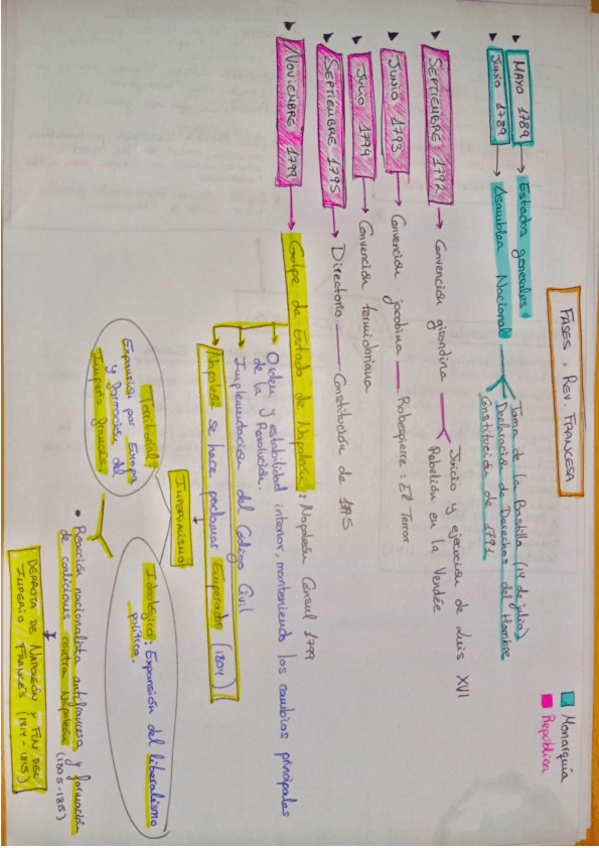 FASES. REV. FRANCESA
Monarquía
República
MAYO 1789 → Estados generales
Junio 1789 → Asamblea Nacional
Toma de la Bastilla (14 de julio)
Declaración de Derechos del Hombre
Constitución de 1791
SEPTIEMBRE 1792 → Convención girondina
Juicio y ejecución de Luis XVI
Rebelión en la Vendée
JUNIO 1793 → Convención jacobina — Robespierre: El Terror.
Julio 1794 → Convención termidoriana
SEPTIEMBRE 1795 → Directorio — Constitución de 1795
NOVIEMBRE 1799 → Golpe de Estado de Napoleón: Napoleón Consul 1799
Orden y estabilidad interior, manteniendo los cambios principales
de la Revolución.
Implementación del Código Civil
Napoleón se hace proclamar Emperador (1804)
Imperialismo
Territorial:
Expansión por Europa
y formación del
Imperio francés
Ideológico: Expansión del liberalismo
político.
• Reacción nacionalista antifrancesa y formación
de coaliciones contra Napoleón (1805-1815)
DERROTA DE NAPOLEÓN Y FIN DEL
IMPERIO FRANCÉS (1814-1815)